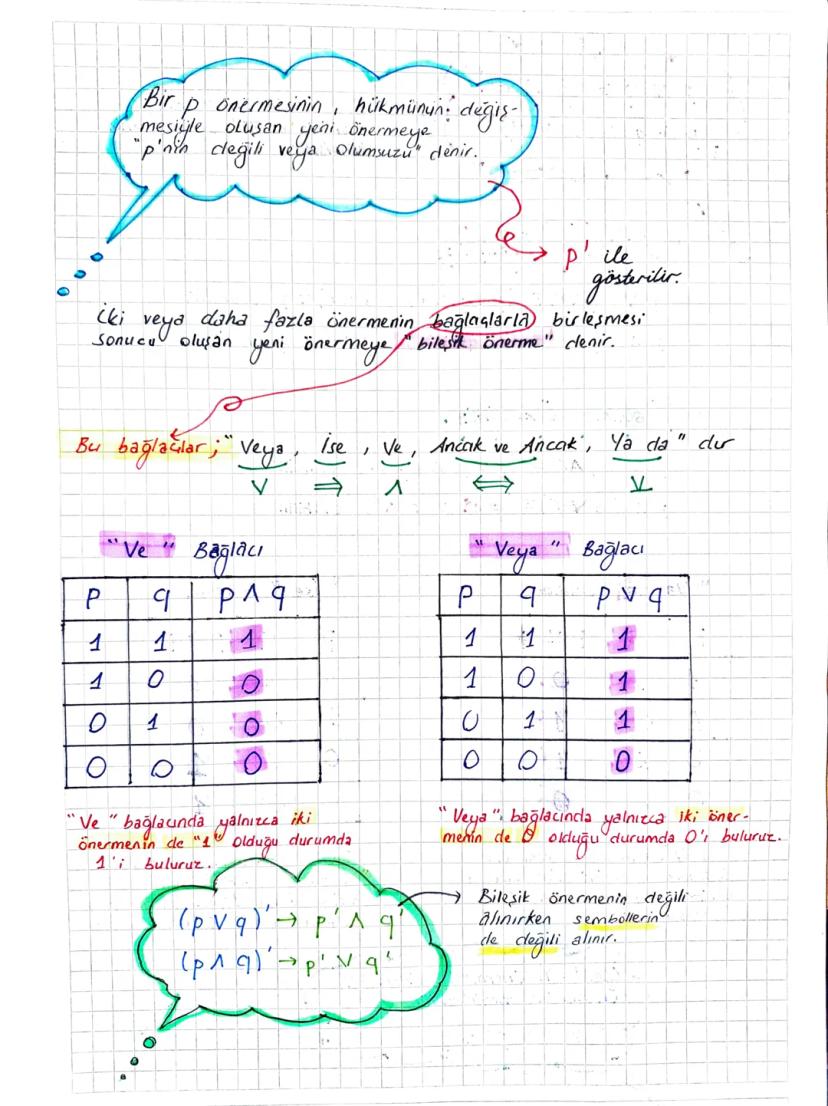 Bir p önermesinin, hükmünün değiş-
mesiyle oluşan yeni önermeye
"p'nin değili veya olumsuzu" denir.
p' ile
gösterilir.
İki veya daha fazla önermenin bağlaçlarla birleşmesi
sonucu oluşan yeni önermeye "bileşik önerme" denir.
Bu bağlaçlar; "Veya, İse, Ve, Ancak ve Ancak, Ya da" dır
∨ ⇒ ∧ ⇔ ⊻
"Ve" Bağlacı
p q p ∧ q
1 1 1
1 0 0
0 1 0
0 0 0
"Ve" bağlacında yalnızca iki
önermenin de "1" olduğu durumda
1'i buluruz.
"Veya" Bağlacı
p q p ∨ q
1 1 1
1 0 1
0 1 1
0 0 0
"Veya" bağlacında yalnızca iki öner-
menin de 0 olduğu durumda 0'ı buluruz.
(p ∨ q)' → p' ∧ q'
(p ∧ q)' → p' ∨ q'
Bileşik önermenin değili
alınırken sembollerin
de değili alınır.